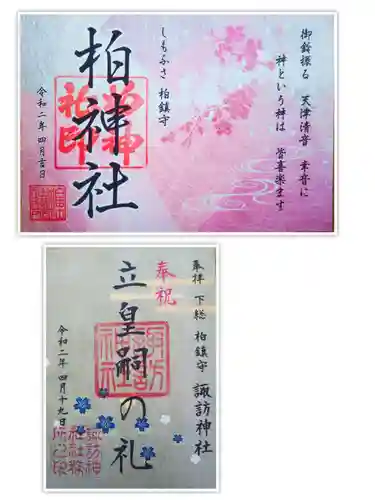 御鈴振る 天津清音 幸音に
神という神は 皆喜楽ま生
しもふさ 柏鎮守
柏神社
令和二年 四月吉日
奉拝 下総 柏鎮守 諏訪神社
奉祝
立皇嗣の礼
令和二年 四月十九日